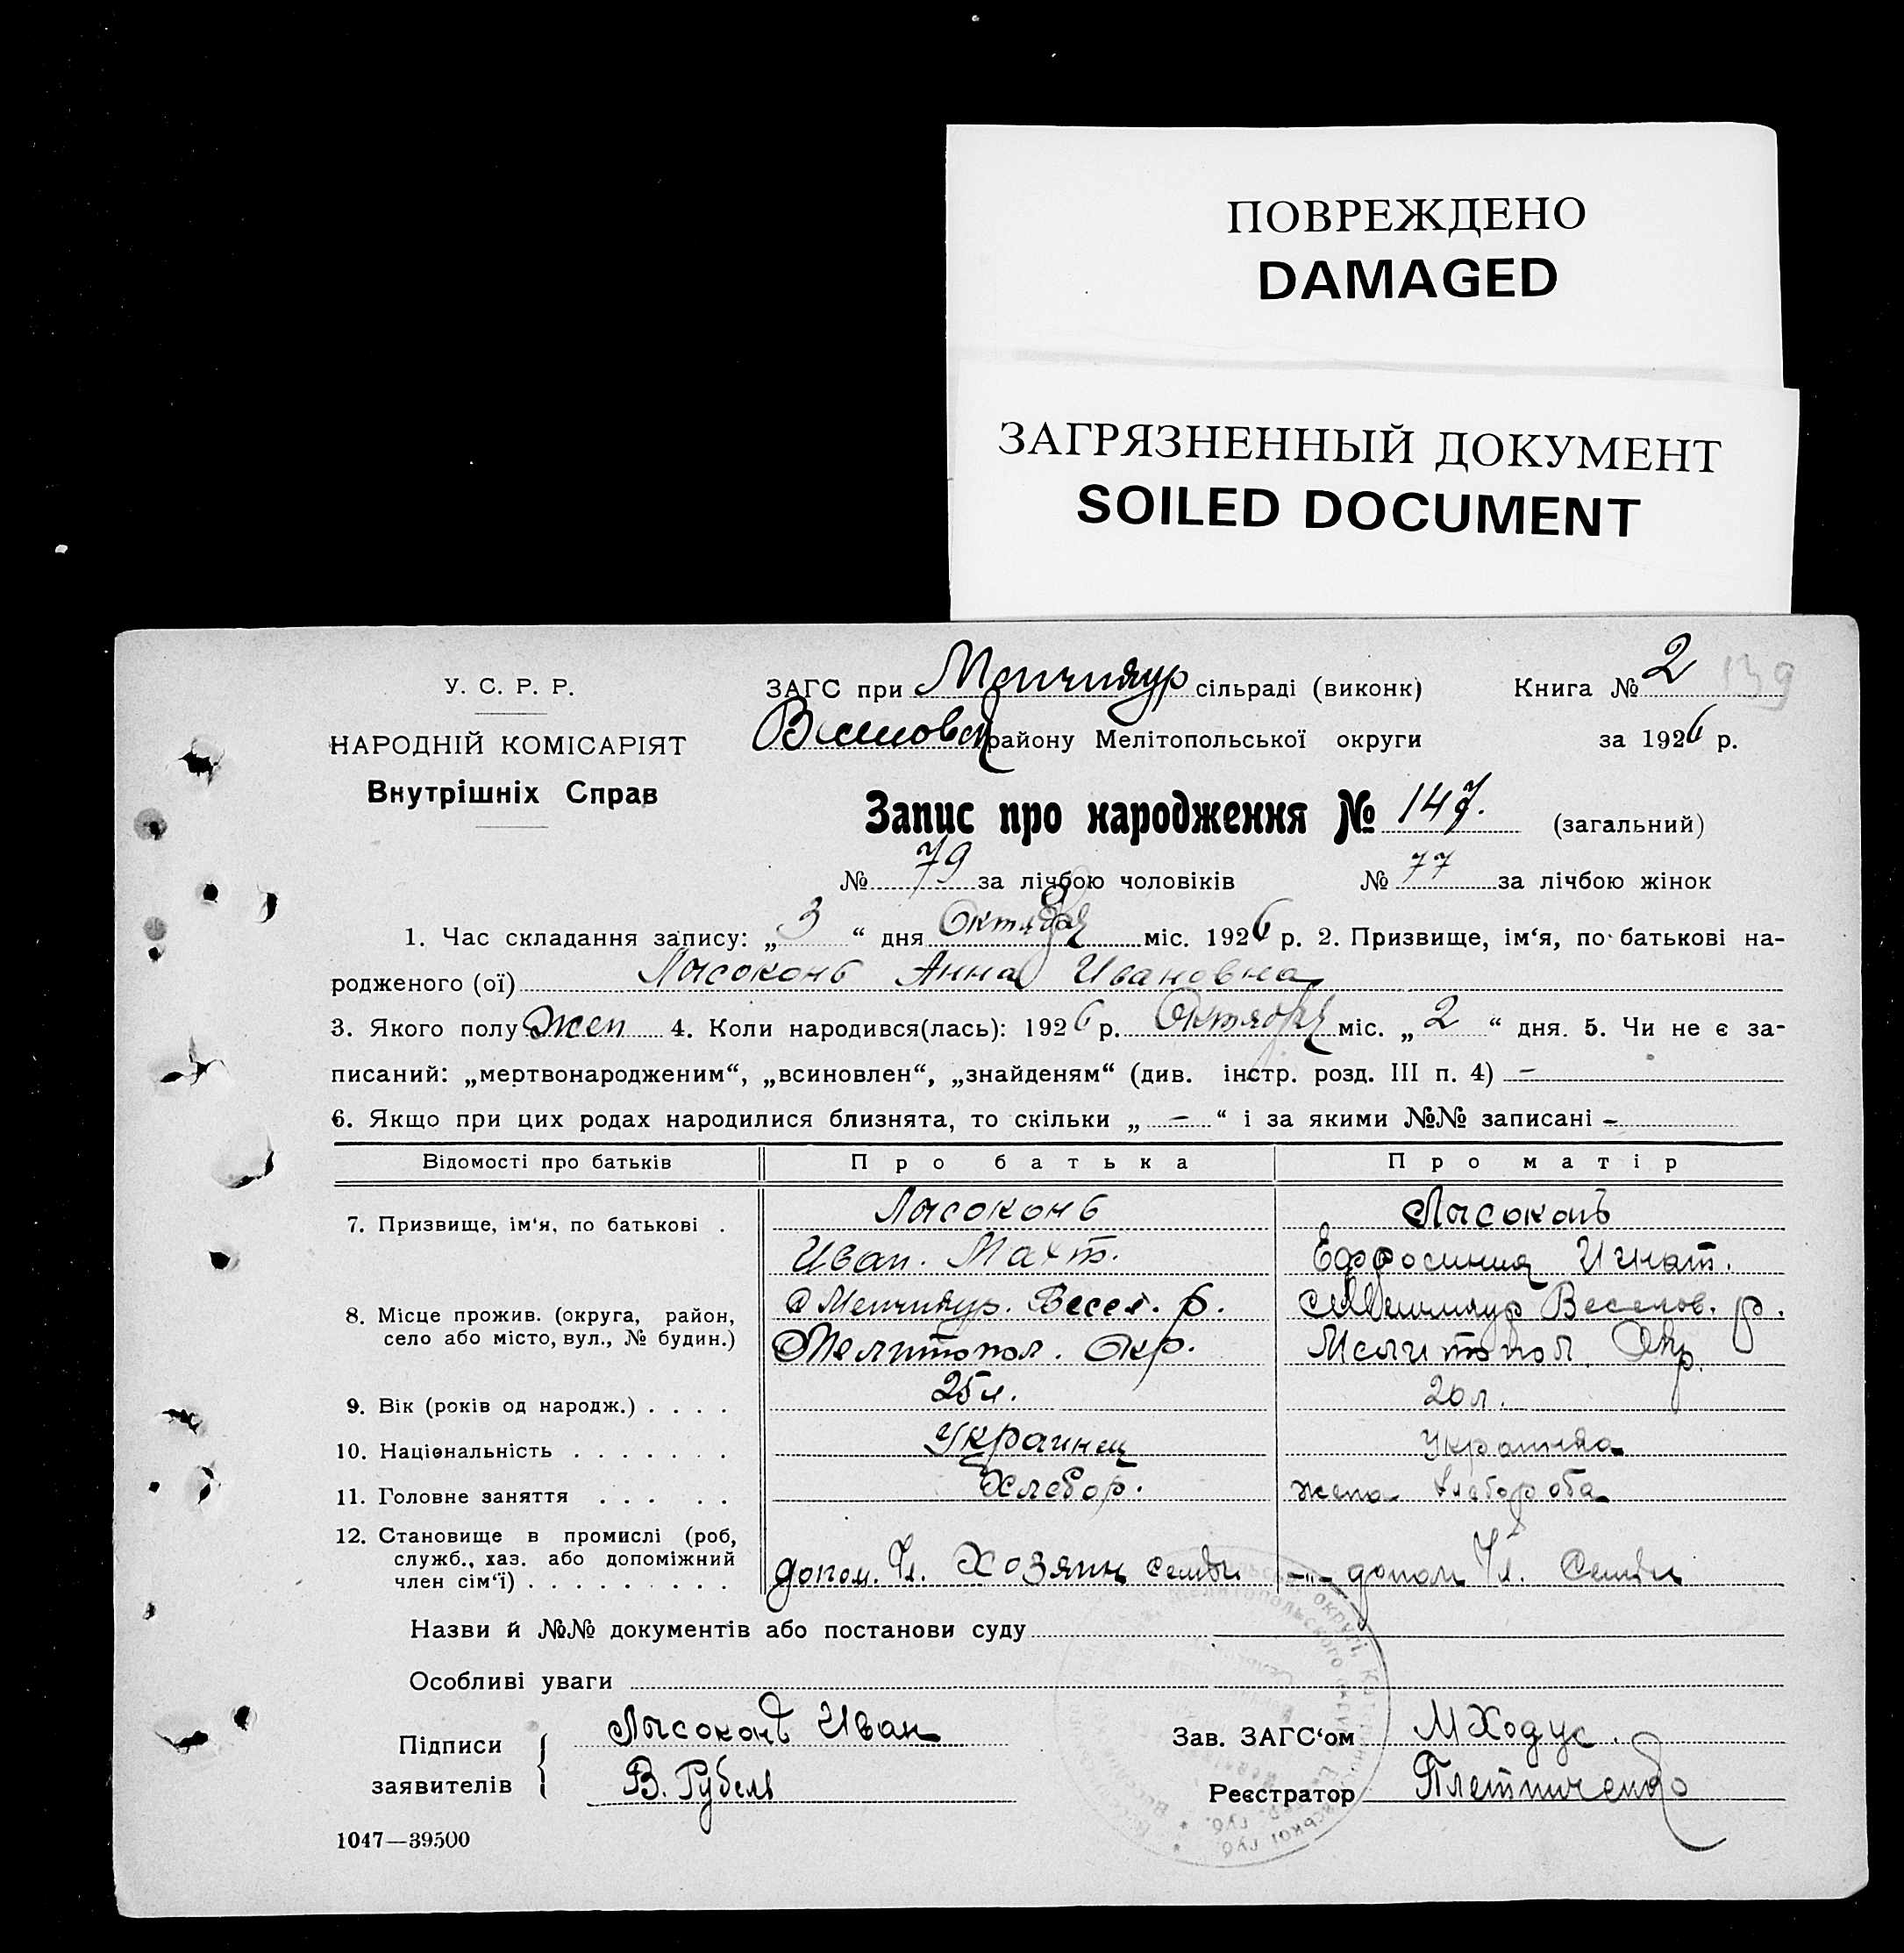 ПОВРЕЖДЕНО
DAMAGED
ЗАГРЯЗНЕННЫЙ ДОКУМЕНТ
SOILED DOCUMENT
У. С. Р. Р.
НАРОДНІЙ КОМІСАРІЯТ
Внутрішніх Справ
ЗАГС при Менчикур сільраді (виконк)
району Мелітопольської округи
Книга № 2 139
за 1926 р.
Запис про народження № 147. (загальний)
№ 79 за лічбою чоловіків № 77 за лічбою жінок
1. Час складання запису: „3“ дня Октября міс. 1926 р. 2. Призвище, ім‘я, по батькові на-
родженого (ої) Лысоконь Анна Ивановна
3. Якого полу жен 4. Коли народився(лась): 1926 р. Октября міс. „2“ дня. 5. Чи не є за-
писаний: „мертвонародженим“, „всиновлен“, „знайденям“ (див. інстр. розд. III п. 4) –
6. Якщо при цих родах народилися близнята, то скільки „ – “ і за якими №№ записані –
Відомості про батьків Про батька Про матір
7. Призвище, ім‘я, по батькові . Лысоконь Лысоконь
Иван. Ефросиния Игнат.
8. Місце прожив. (округа, район, с Менчикур. Весел. р. Менчикур Веселов. р.
село або місто, вул., № будин.) Мелитопол. Окр. Мелитопол. Окр.
9. Вік (років од народж.) . . . . 25 л. 20 л.
10. Національність . . . . . . . Украинец Украинка
11. Головне заняття . . . . . Хлебор. жена хлебороба
12. Становище в промислі (роб,
служб., хаз. або допоміжний
член сім‘ї) . . . . . . . . . допом. Чл. Хозяин семьи –"– допом Чл. Семьи
Назви й №№ документів або постанови суду
Особливі уваги
Підписи
заявителів
Лысоконь Иван
В. Рубель
Зав. ЗАГС‘ом М Ходус.
Реєстратор
1047—39500